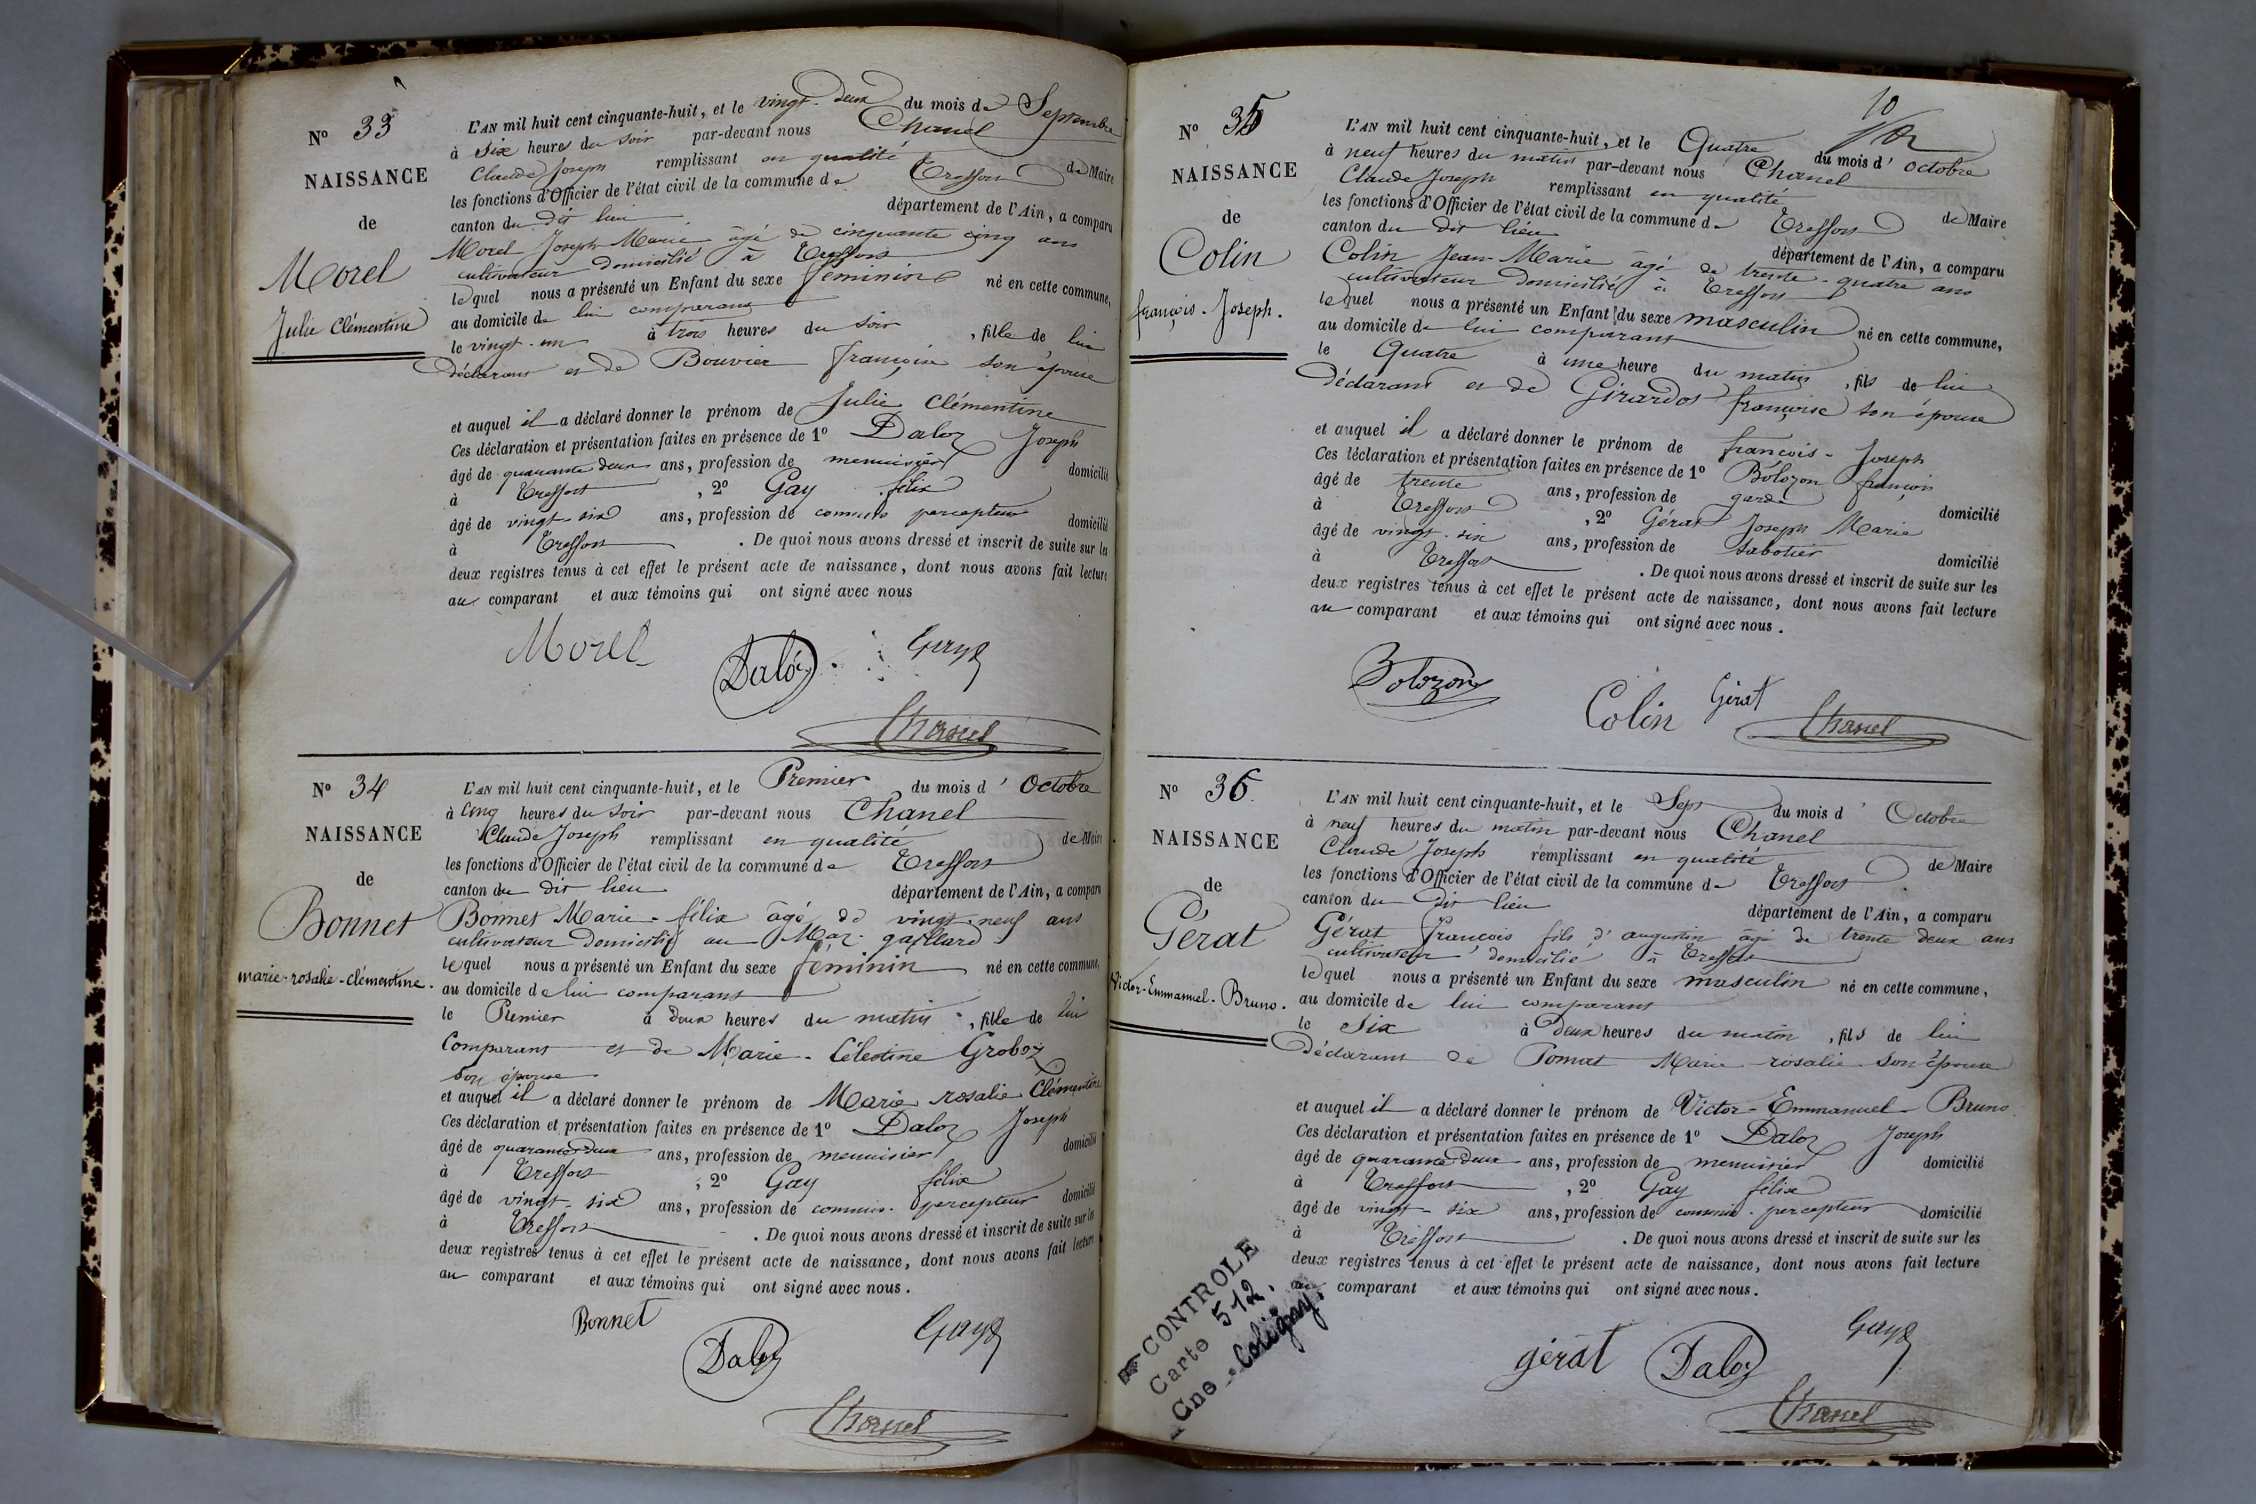 N° 33
NAISSANCE
de
Morel
Julie Clémentine
L'AN mil huit cent cinquante-huit, et le vingt-deux du mois de Septembre
à six heures du soir par-devant nous Chanel
Claude Joseph remplissant en qualité de Maire
les fonctions d'Officier de l'état civil de la commune de Treffort
canton du dit lieu département de l'Ain, a comparu
Morel Joseph Marie âgé de cinquante cinq ans
cultivateur domicilié à Treffort
lequel nous a présenté un Enfant du sexe féminin né en cette commune,
au domicile de lui comparant
le vingt-un à trois heures du soir, fille de lui
déclarant et de Bouvier françoise son épouse
et auquel il a déclaré donner le prénom de Julie Clémentine
Ces déclaration et présentation faites en présence de 1° Daloz Joseph
âgé de quarante deux ans, profession de menuisier domicilié
à Treffort, 2° Gay félix
âgé de vingt-six ans, profession de commis percepteur domicilié
à Treffort. De quoi nous avons dressé et inscrit de suite sur les
deux registres tenus à cet effet le présent acte de naissance, dont nous avons fait lecture
au comparant et aux témoins qui ont signé avec nous
Morel Daloz Gay
Chanel
N° 34
NAISSANCE
de
Bonnet
marie-rosalie-clémentine.
L'AN mil huit cent cinquante-huit, et le Premier du mois d'Octobre
à cinq heures du soir par-devant nous Chanel
Claude Joseph remplissant en qualité de Maire
les fonctions d'Officier de l'état civil de la commune de Treffort
canton du dit lieu département de l'Ain, a comparu
Bonnet Marie-félix âgé de vingt-neuf ans
cultivateur domicilié au Mas-gaillard
lequel nous a présenté un Enfant du sexe féminin né en cette commune,
au domicile de lui comparant
le Premier à deux heures du matin, fille de lui
Comparant et de Marie-Célestine Groboz
son épouse
et auquel il a déclaré donner le prénom de Marie rosalie Clémentine
Ces déclaration et présentation faites en présence de 1° Daloz Joseph
âgé de quarante-deux ans, profession de menuisier domicilié
à Treffort, 2° Gay félix
âgé de vingt-six ans, profession de commis-percepteur domicilié
à Treffort. De quoi nous avons dressé et inscrit de suite sur les
deux registres tenus à cet effet le présent acte de naissance, dont nous avons fait lecture
au comparant et aux témoins qui ont signé avec nous.
Bonnet Daloz Gay
Chanel
10
N° 35
NAISSANCE
de
Colin
françois-Joseph.
L'AN mil huit cent cinquante-huit, et le Quatre du mois d'octobre
à neuf heures du matin par-devant nous Chanel
Claude Joseph remplissant en qualité de Maire
les fonctions d'Officier de l'état civil de la commune de Treffort
canton du dit lieu département de l'Ain, a comparu
Colin Jean-Marie âgé de trente-quatre ans
cultivateur domicilié à Treffort
lequel nous a présenté un Enfant du sexe masculin né en cette commune,
au domicile de lui comparant
le Quatre à une heure du matin, fils de lui
déclarant et de Girardot françoise son épouse
et auquel il a déclaré donner le prénom de françois-Joseph
Ces déclaration et présentation faites en présence de 1° Bolozon françois
âgé de trente ans, profession de garde domicilié
à Treffort, 2° Gérat Joseph Marie
âgé de vingt-six ans, profession de sabotier domicilié
à Treffort. De quoi nous avons dressé et inscrit de suite sur les
deux registres tenus à cet effet le présent acte de naissance, dont nous avons fait lecture
au comparant et aux témoins qui ont signé avec nous.
Bolozon Colin Gérat Chanel
N° 36.
NAISSANCE
de
Gérat
Victor-Emmanuel-Bruno.
L'AN mil huit cent cinquante-huit, et le Sept du mois d'Octobre
à neuf heures du matin par-devant nous Chanel
Claude Joseph remplissant en qualité de Maire
les fonctions d'Officier de l'état civil de la commune de Treffort
canton du dit lieu département de l'Ain, a comparu
Gérat françois fils d'augustin âgé de trente deux ans
cultivateur domicilié à Treffort
lequel nous a présenté un Enfant du sexe masculin né en cette commune,
au domicile de lui comparant
le six à deux heures du matin, fils de lui
déclarant de Pomat Marie rosalie son épouse
et auquel il a déclaré donner le prénom de Victor-Emmanuel-Bruno
Ces déclaration et présentation faites en présence de 1° Daloz Joseph
âgé de quarante-deux ans, profession de menuisier domicilié
à Treffort, 2° Gay félix
âgé de vingt-six ans, profession de commis-percepteur domicilié
à Treffort. De quoi nous avons dressé et inscrit de suite sur les
deux registres tenus à cet effet le présent acte de naissance, dont nous avons fait lecture
au comparant et aux témoins qui ont signé avec nous.
gérat Daloz Gay
Chanel
CONTROLE
Carte 512.
Cne Coligny.